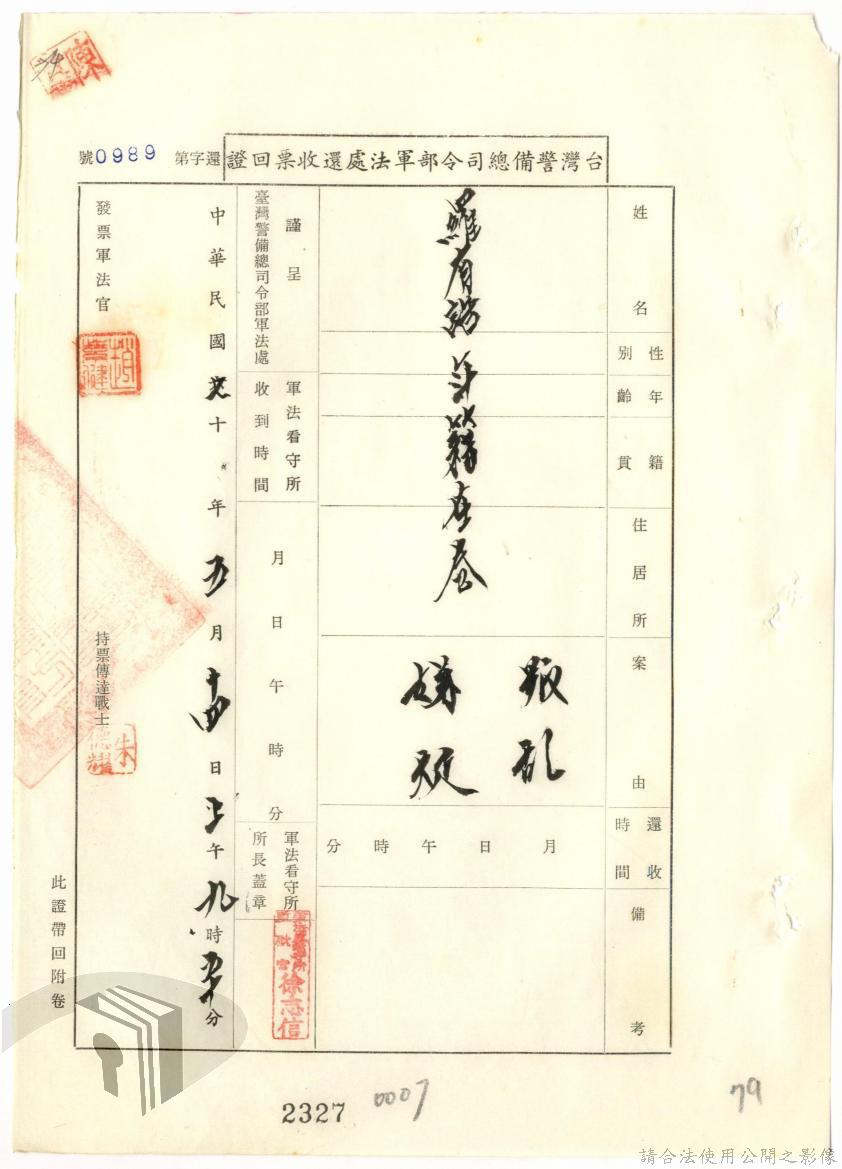 台灣警備總司令部軍法處還收票回證
還字第0989號
姓名
性別
年齡
籍貫
住居所
案由
還收時間
備考
羅有
年籍在卷
叛乱
嫌疑
月日午時分
謹呈
臺灣警備總司令部軍法處
軍法看守所
收到時間
月日午時分
軍法看守所
所長蓋章
徐志信
中華民國十年五月十四日上午九時分
發票軍法官
持票傳達戰士
朱德耀
此證帶回附卷
2327
0007
79
請合法使用公開之影像